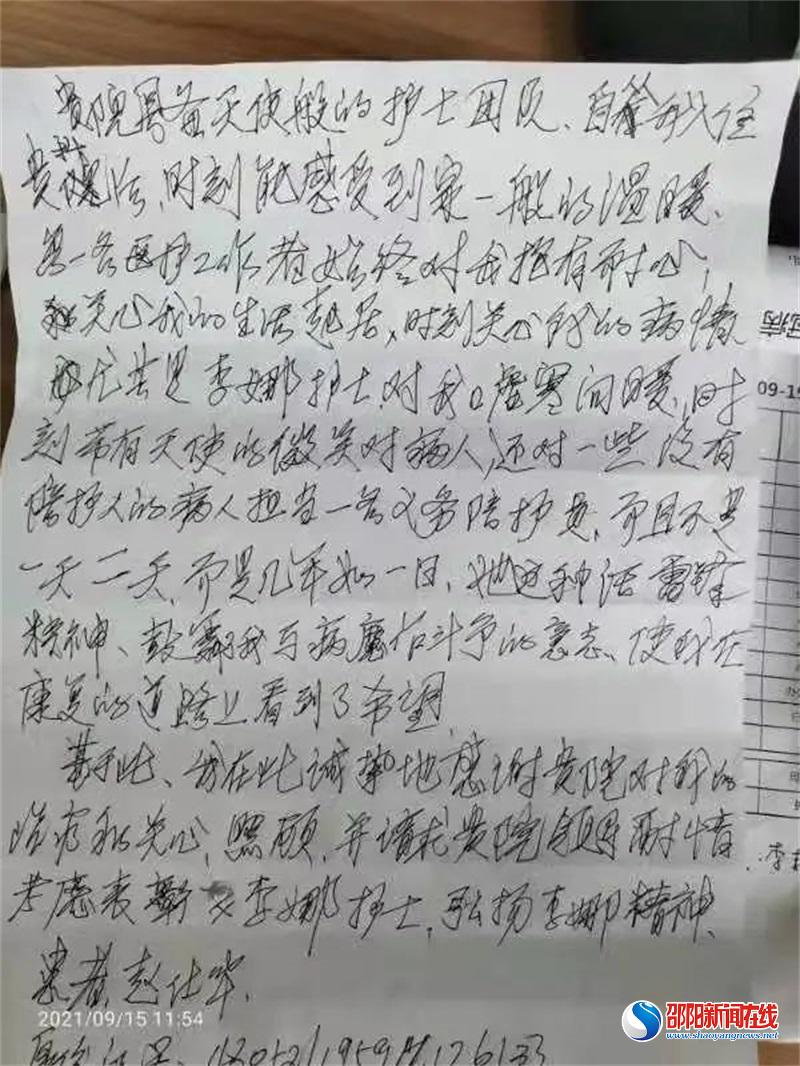 贵院具备天使般的护士团队、自我住
贵院后,时刻能感受到家一般的温暖、
每一名医护工作者始终对我抱有耐心,
关心我的生活起居、时刻关心我的病情
尤其是李娜护士,对我嘘寒问暖,时
刻带有天使的微笑对病人,还对一些没有
陪护人的病人担当一名义务陪护员,而且不是
一天二天,而是几年如一日、她这种活雷锋
精神、鼓舞我与病魔作斗争的意志、使我在
康复的道路上看到了希望
基于此、我在此诚挚地感谢贵院对我的
治疗和关心,照顾,并请求贵院领导酌情
考虑表彰李娜护士,弘扬李娜精神、
患者,赵仕华.
2021/09/15 11:54
冠病
09-19
邵阳新闻在线
www.shaoyangnews.net